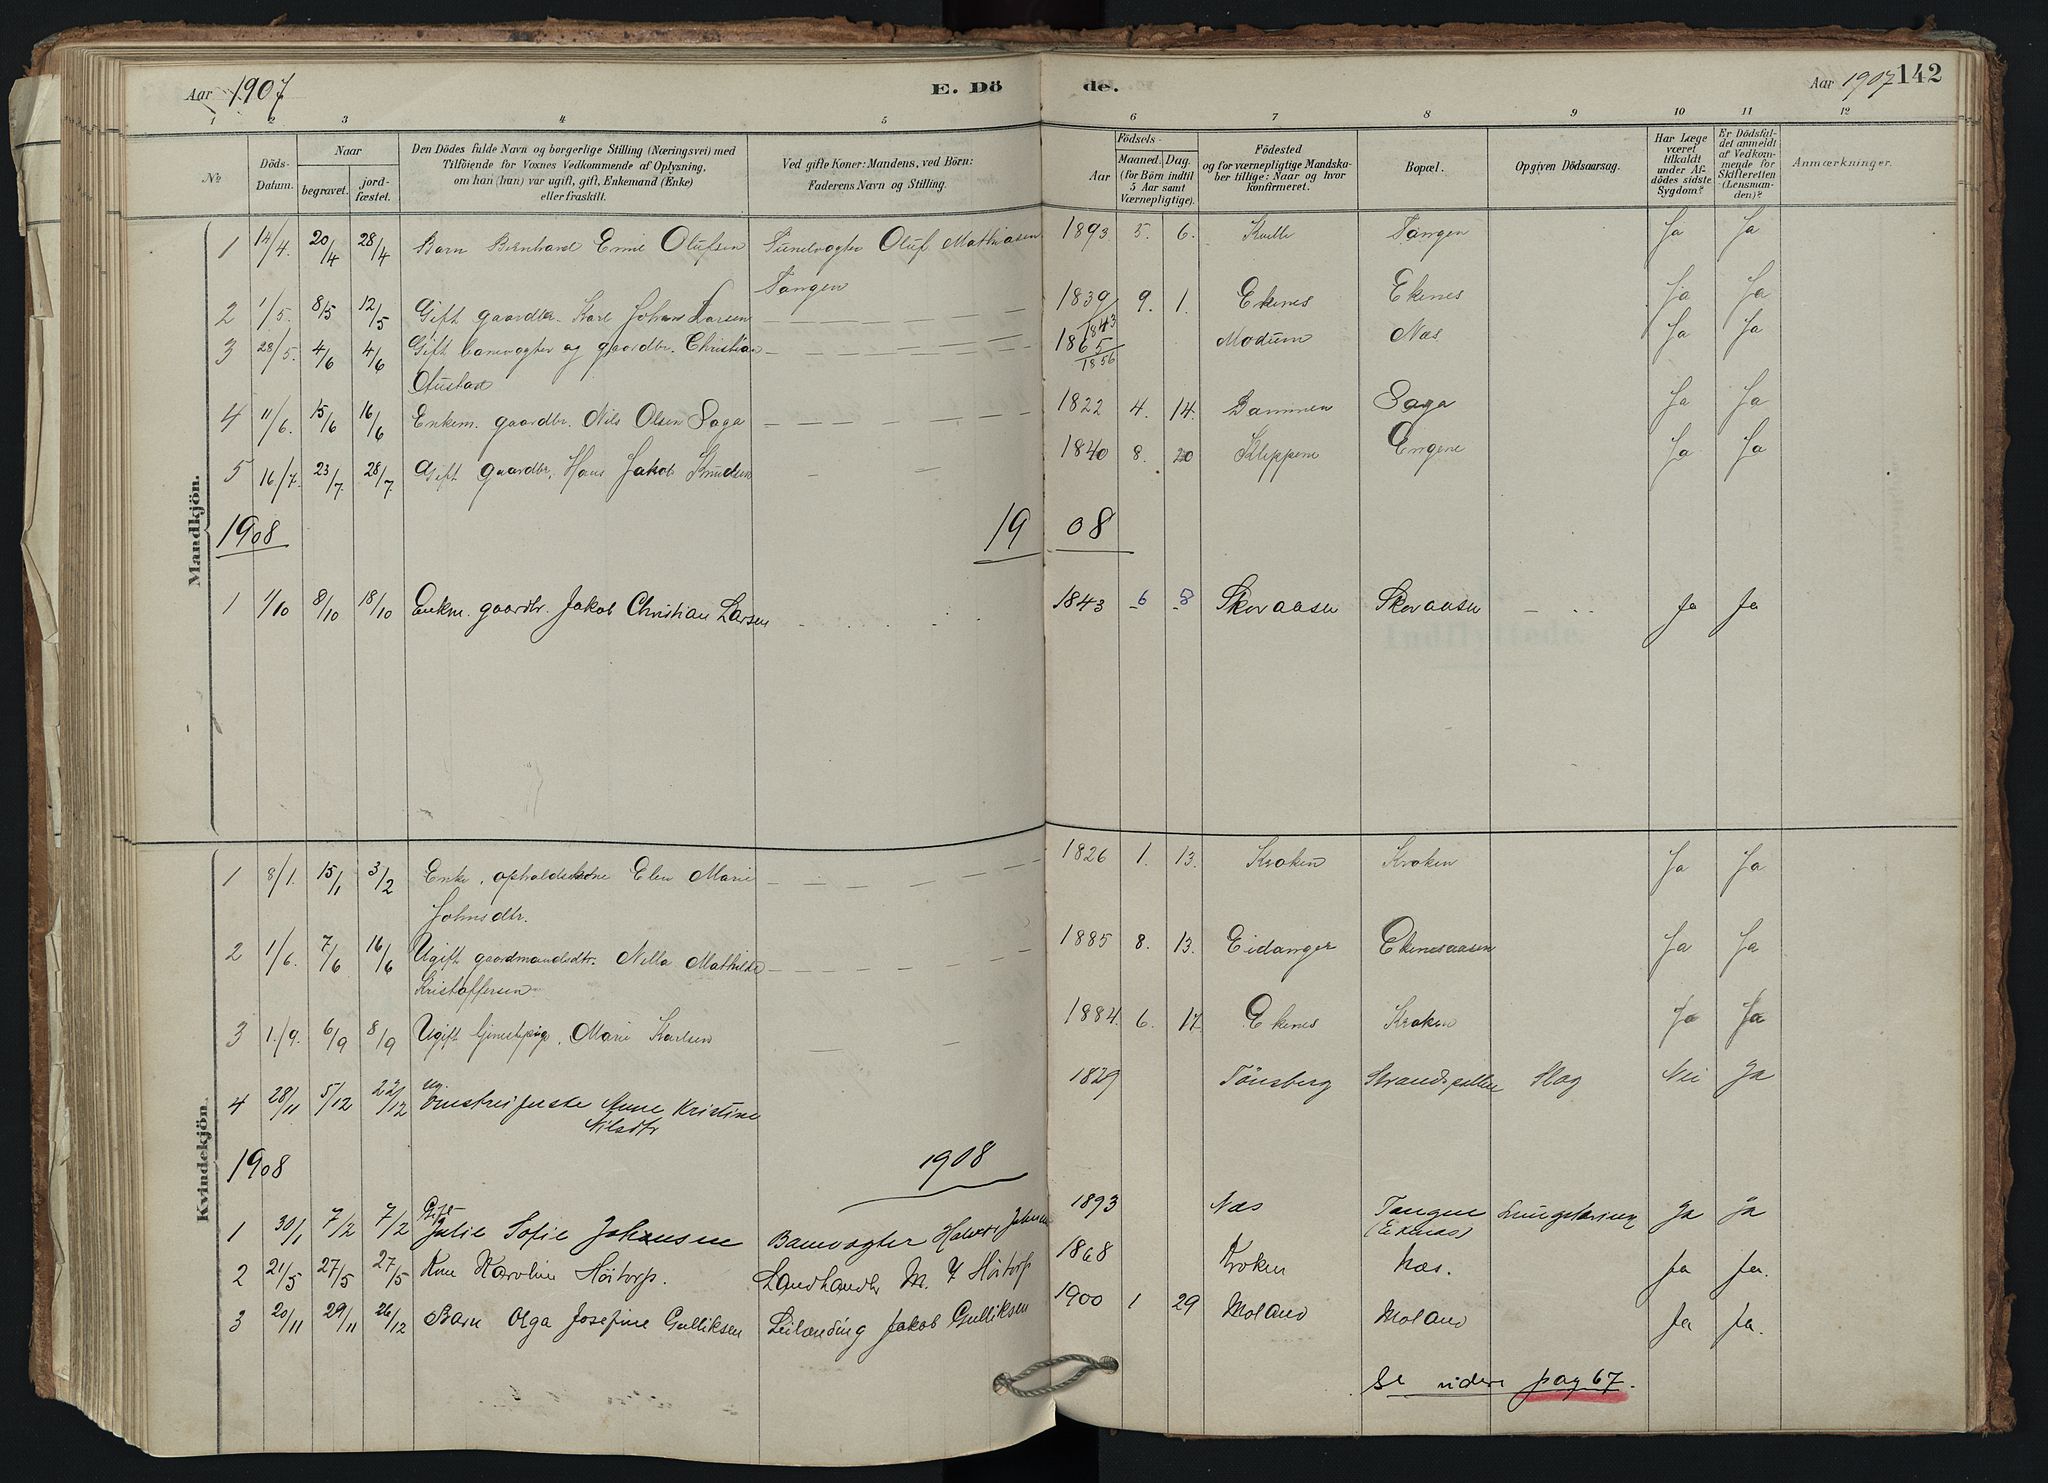 Aar 1907 E. Dö de. Aar 1907 142
1 2 3 4 5 6 7 8 9 10 11 12
No
Döds-Datum.
Naar
begravet. jord-fæstet.
Den Dödes fulde Navn og borgerlige Stilling (Næringsvei) med
Tilföiende for Voxnes Vedkommende af Oplysning,
om han (hun) var ugift, gift, Enkemand (Enke)
eller fraskilt.
Ved gifte Koner: Mandens, ved Börn:
Faderens Navn og Stilling.
Födsels-
Aar
Maaned. Dag.
(for Börn indtil
5 Aar samt
Værnepligtige).
Födested
og for værnepligtige Mandska-
ber tillige: Naar og hvor
konfirmeret.
Bopæl.
Opgiven Dödsaarsag.
Har Læge
været
tilkaldt
under Af-
dödes sidste
Sygdom?
Er Dödsfal-
det anmeldt
af Vedkom-
mende for
Skifteretten
(Lensman-
den)?
Anmærkninger.
Mandkjön.
1 14/4. 20/4 28/4 Barn Bernhard Emil Olufsen Oluf Mathiasen 1893. 5. 6. Tangen Ja Ja
Tangen
2 1/5. 8/5 12/5 Gift gaardbr. Karl Johan Larsen 1839 9. 1. Ekenes Ekenes Ja Ja
1843
3 28/5. 4/6 4/6 Gift banevogter og gaardbr. Christian 1865 Modum Næs Ja Ja
1856
4 11/6. 15/6 16/6 Enkem. gaardbr. Nils Olsen Saga 1822 4. 14. Saga Ja Ja
5 16/7. 23/7. 28/7 Gift gaardbr. Hans Jakob Knudsen 1840 8. 20 Kleppen Engene Ja Ja
1908 19 08
1 1/10 8/10 18/10 Enkm. gaardbr. Jakob Christian Larsen 1843 6 8 Skovaasen Skovaasen Ja Ja
Kvindekjön.
1 8/1. 15/1 3/2 Enke, Elen Marie 1826 1. 13. Kroken Kroken Ja Ja
Johnsdtr.
2 1/6. 7/6 16/6 Ugift gaardmandsdtr. Nella Mathilde 1885 8. 13. Eidanger Ekenesaasen Ja Ja
Kristoffersen
3 1./9. 6/9 8/9 Ugift Marie Karlsen 1884. 6. 17. Ekenes Kroken Ja Ja
4 28/11 5/12 22/12 ug. Anne Kristine 1829 Tönsberg Slag Nei Ja
Nilsdtr
1908 1908
1 30/1 7/2 7/2 Julie Sofie Johansen Banevogter Halvor 1893 Næs Tangen Ja Ja
(Ekenæs)
2 21/5 27/5 27/5 Karoline Höitorp. Landhandlr M. Höitorp 1868 Kroken Næs. Ja Ja.
3 20/11 29/11 26/12 Barn Olga Josefine Gulliksen Leilænding Jakob Gulliksen 1900 1 29 Moland Moland Ja Ja.
Se videre pag 67.